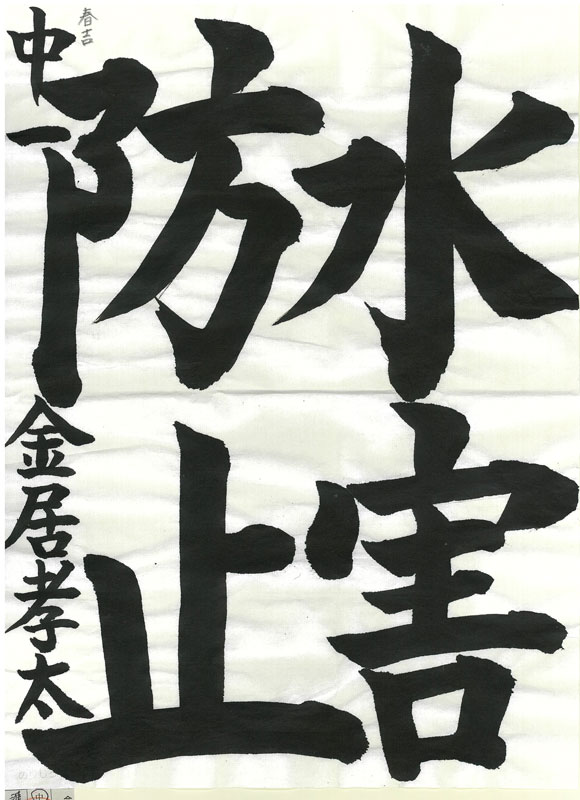 水害
防止
中一 金居孝太
春吉